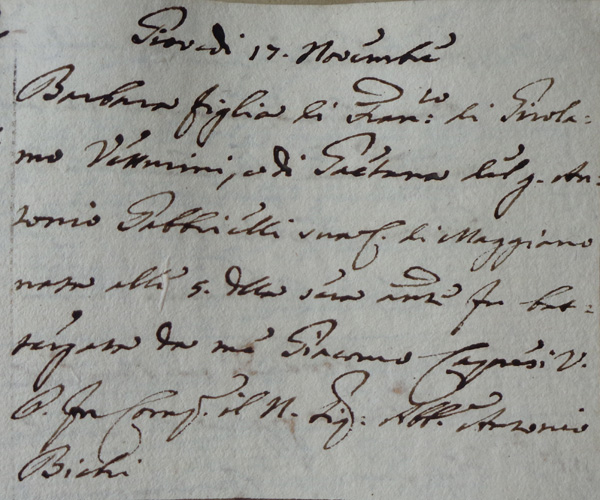 Giovedi 17. Novembre
Barbara figlia di Fran:co di Girola=
mo Vetturini, e di Gaetana del q. An=
tonio Gabbrielli sua C. di Maggiano
nata alle 5. della sera antte fu bat=
tezzata da me Giacomo Capresi V.
C. fu Comp. il N. Sig: Abb.e Antonio
Bichi